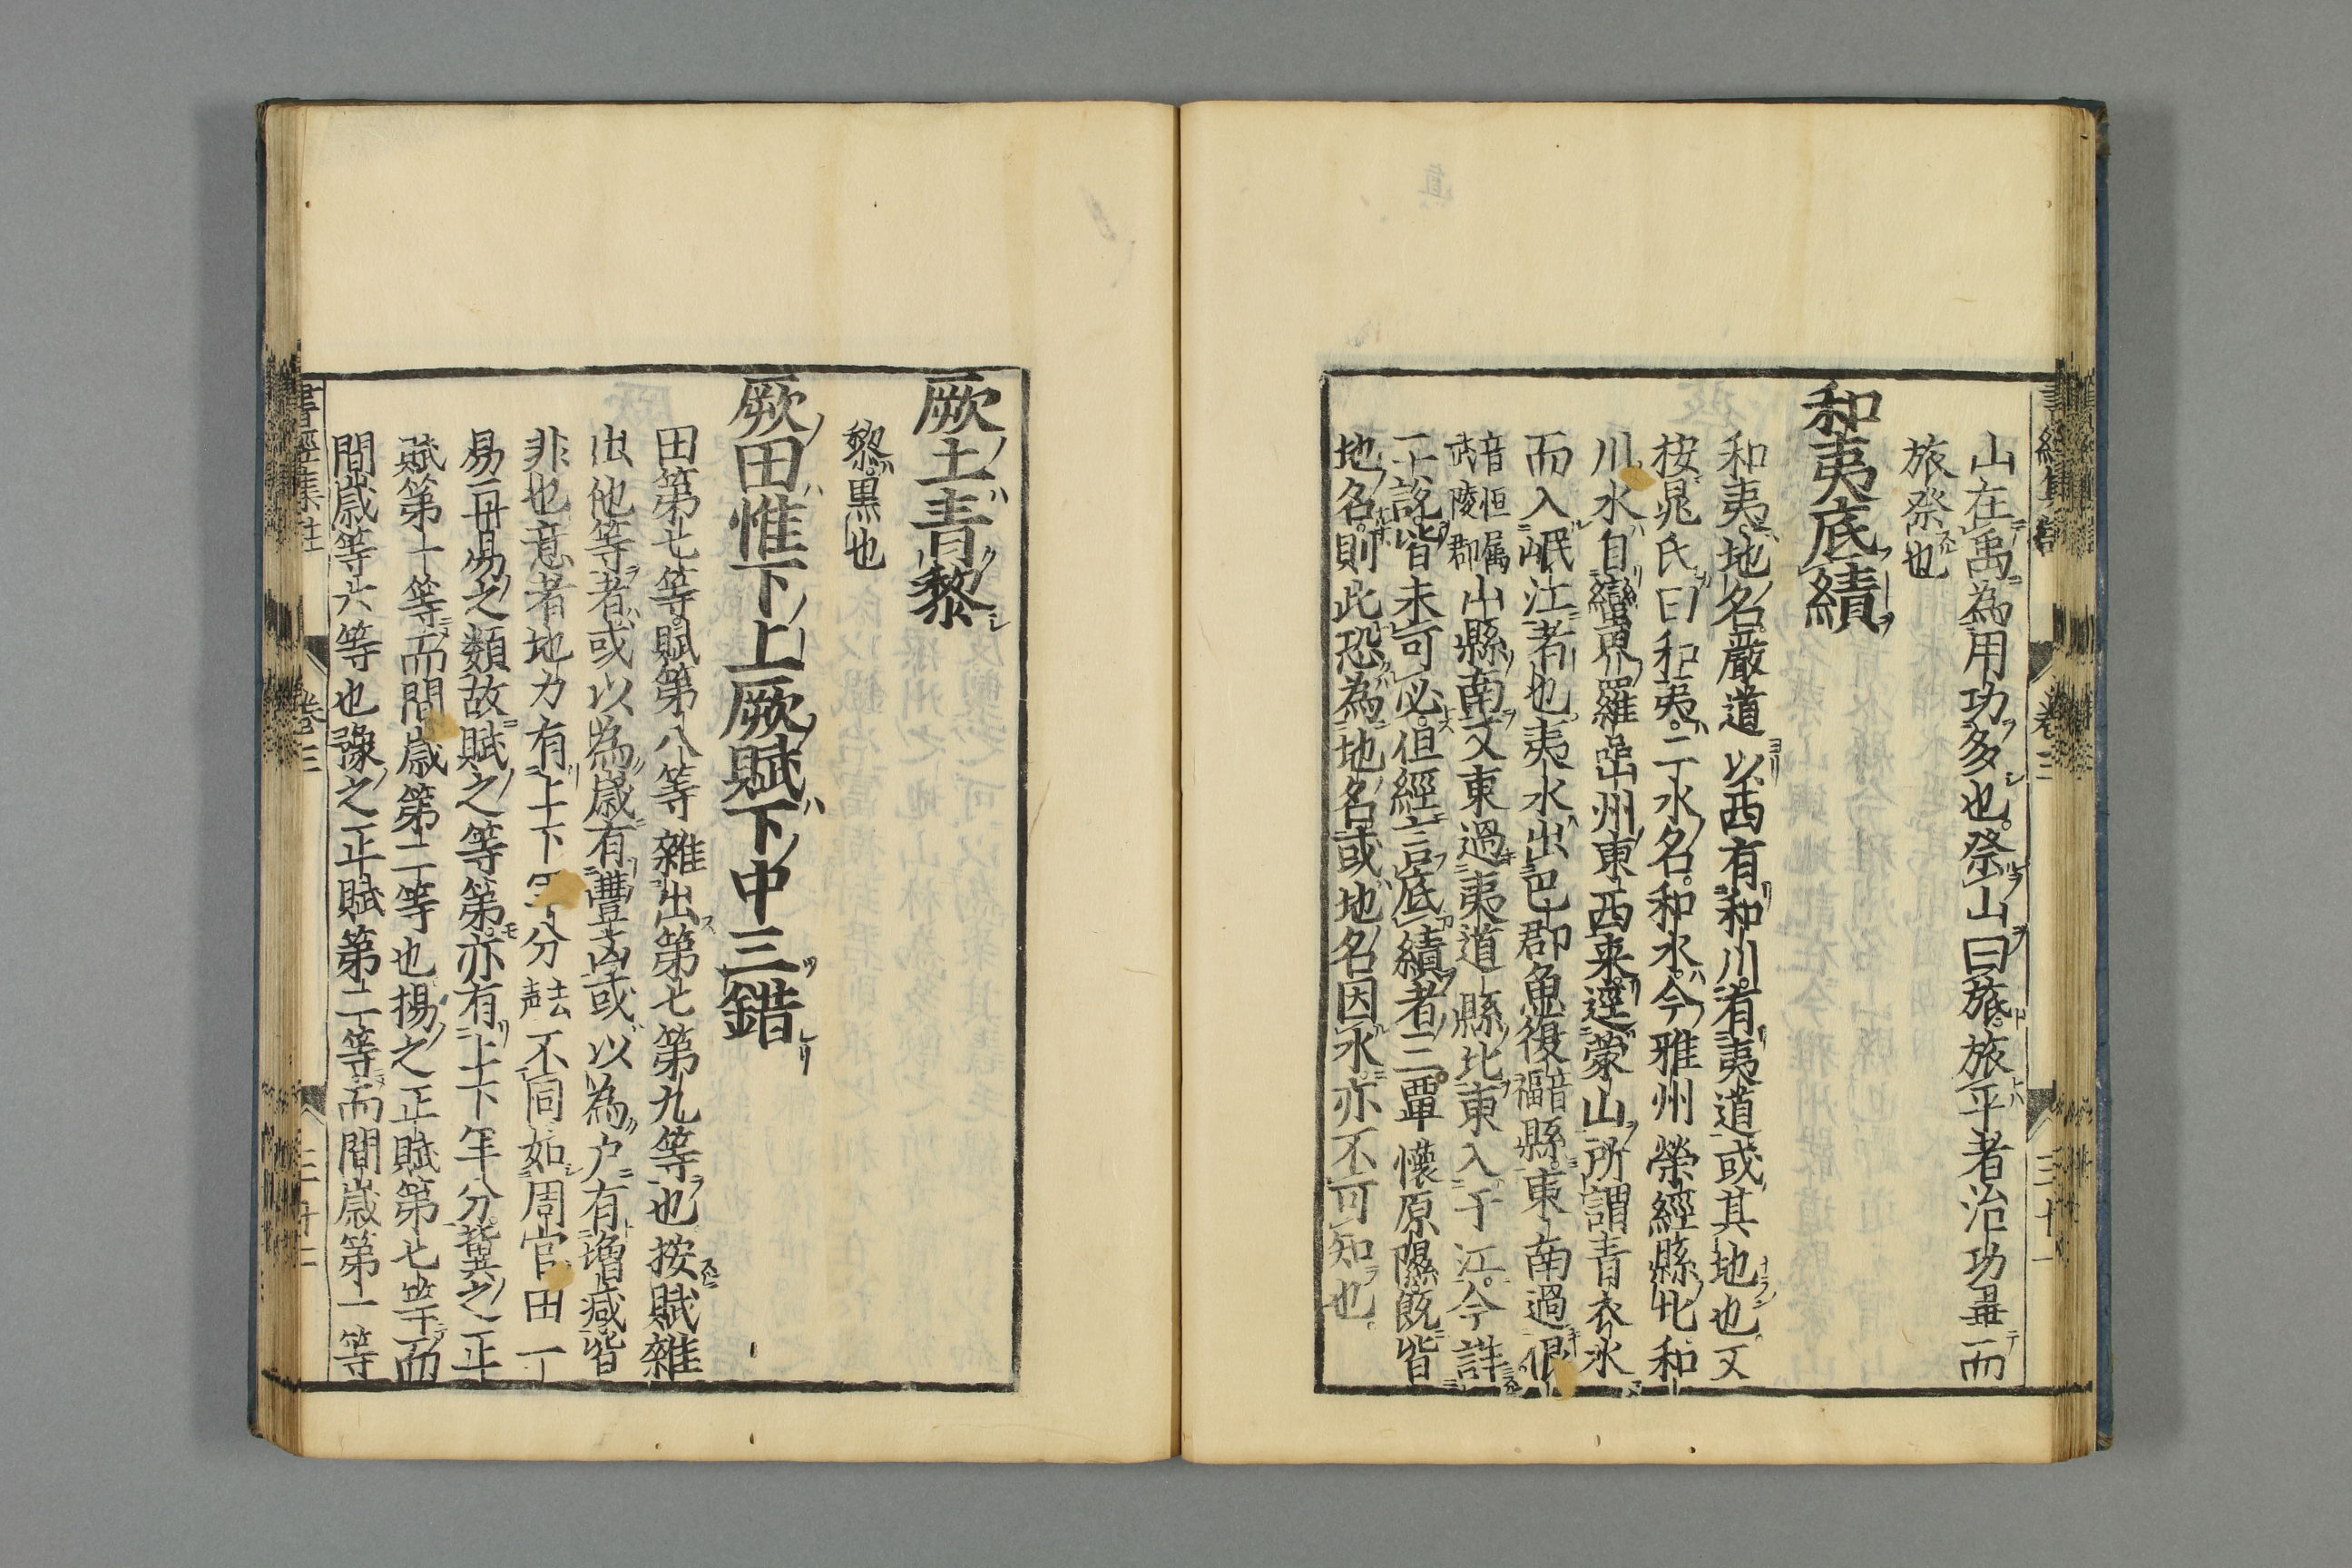 山在禹為用功多也祭山曰旅旅平者治功畢而
旅祭也
和夷厎績
和夷地名嚴道以西有和川有夷道或其地也又
按晁氏曰和夷二水名和水今雅州榮經縣北和
川水自蠻界羅嵒州東西来逕蒙山所謂青衣水
而入岷江者也夷水出巴郡魚復音福縣東南過佷
音恒属武陵郡山縣南又東過夷道縣北東入于江今詳
二説皆未可必但經言厎績者三覃懷原隰既皆
地名則此恐為地名或地名因水亦不可知也
厥土青黎
黎黒也
厥田惟下上厥賦下中三錯
田第七等賦第八等雜出第七第九等也按賦雜
出他等者或以為歳有豐凶或以為户有増减皆
非也意者地力有上下年分去声不同如周官田一
易再易之類故賦之等第亦有上下年分冀之正
賦第一等而間歳第二等也揚之正賦第七等而
間歳第六等也豫之正賦第二等而間歳第一等
書經集註
卷三
三十二